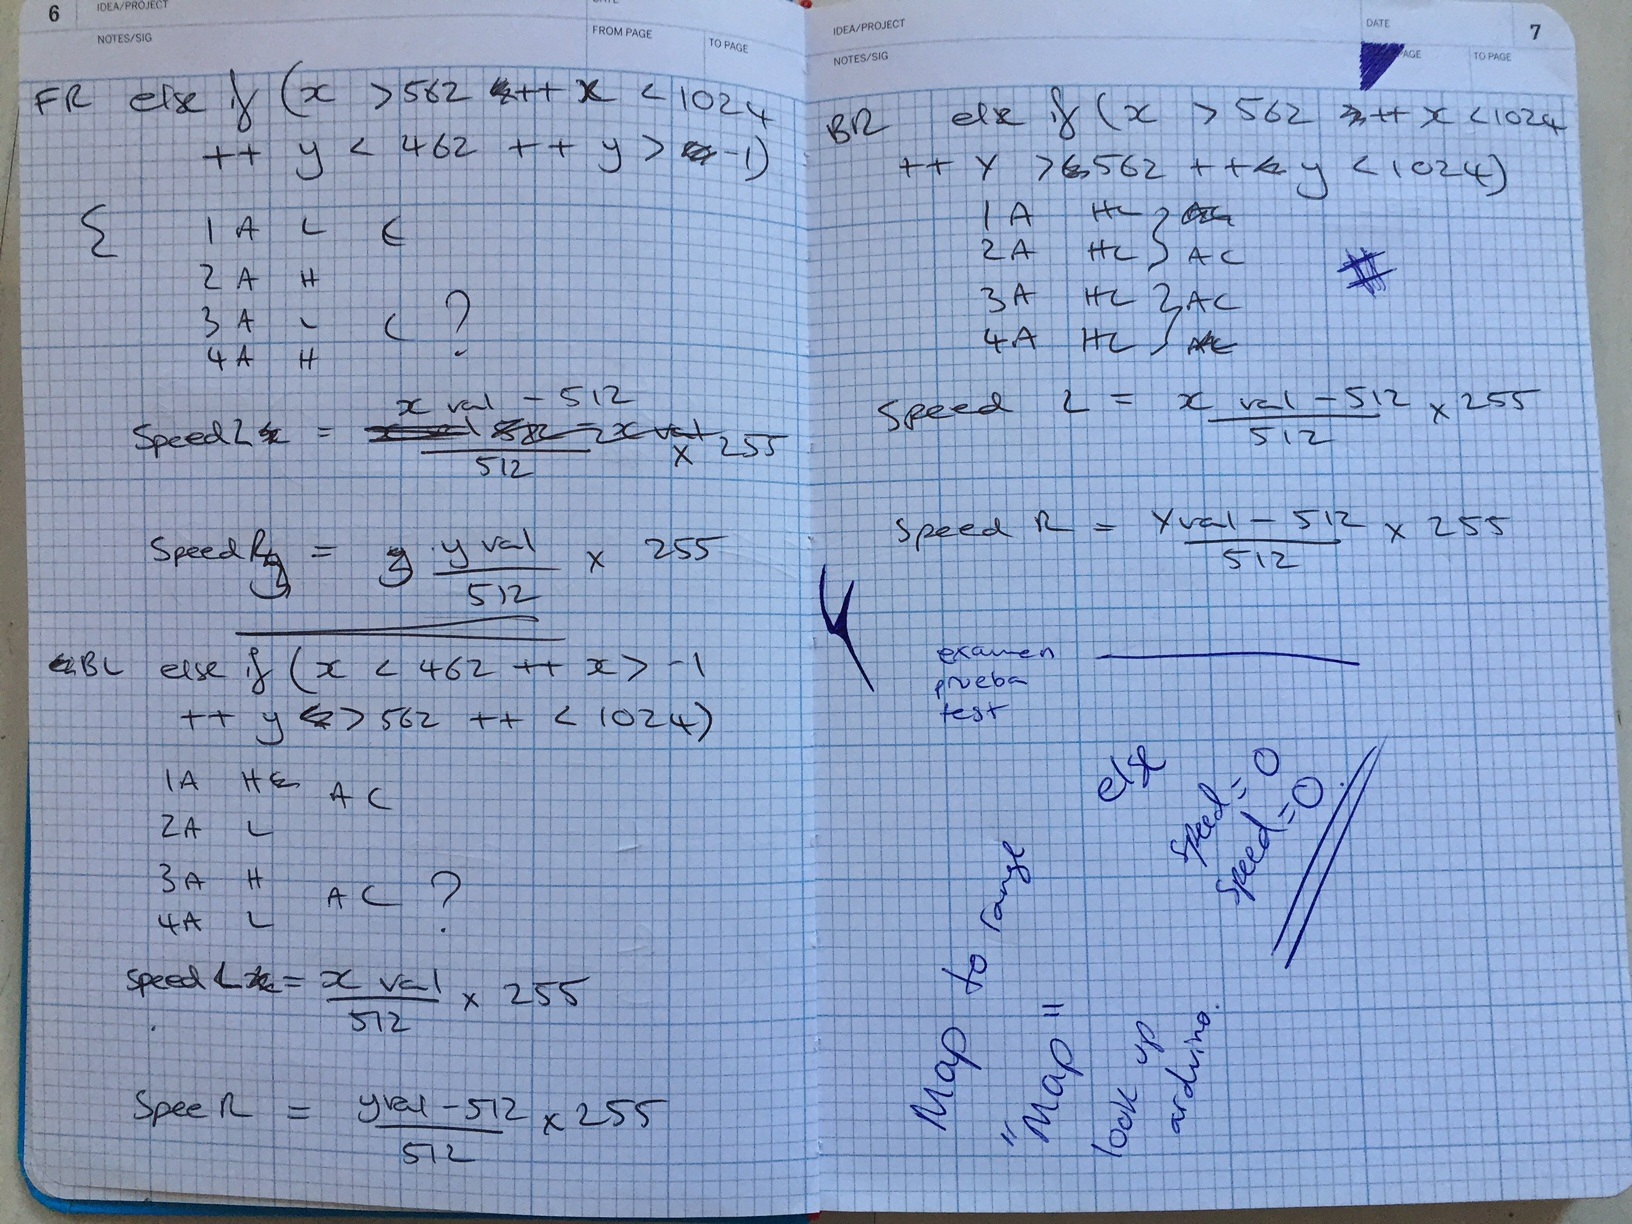 6 IDEA/PROJECT
NOTES/SIG FROM PAGE TO PAGE
FR else if (x > 562 ++ x < 1024
++ y < 462 ++ y > -1)
{ 1A L C
2A H
3A L C ?
4A H
x val - 512
Speed L = x 255
512
Speed R = y val x 255
512
BL else if (x < 462 ++ x > -1
++ y > 562 ++ < 1024)
1A H AC
2A L
3A H AC ?
4A L
Speed L = x val x 255
512
Spee R = y val - 512 x 255
512
IDEA/PROJECT DATE 7
NOTES/SIG AGE TO PAGE
BR else if (x > 562 ++ x < 1024
++ y > 562 ++ y < 1024)
1A HL
2A HL AC
3A HL AC
4A HL AC
Speed L = x val - 512 x 255
512
Speed R = Y val - 512 x 255
512
examen
prueba
test
else
Speed = 0
Speed = 0
Map to range
"Map"
look up
arduino.